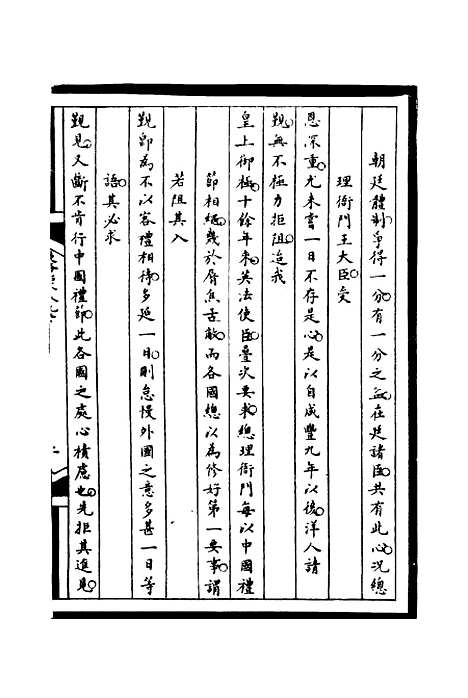 朝廷體制爭得一分有一分之益在廷諸臣共有此心況總
理衙門王大臣受
恩深重尤未嘗一日不存是心是以自咸豐九年以後洋人請
覲無不極力拒阻迨我
皇上御極十餘年來英法使臣疊次要求總理衙門每以中國禮
節相繩幾於脣焦舌敝而各國總以為修好第一要事謂
若阻其入
覲卽為不以客禮相待多延一日則怠慢外國之意多甚一日等
語其必求
覲見又斷不肯行中國禮節此各國之處心積慮也先拒其進見